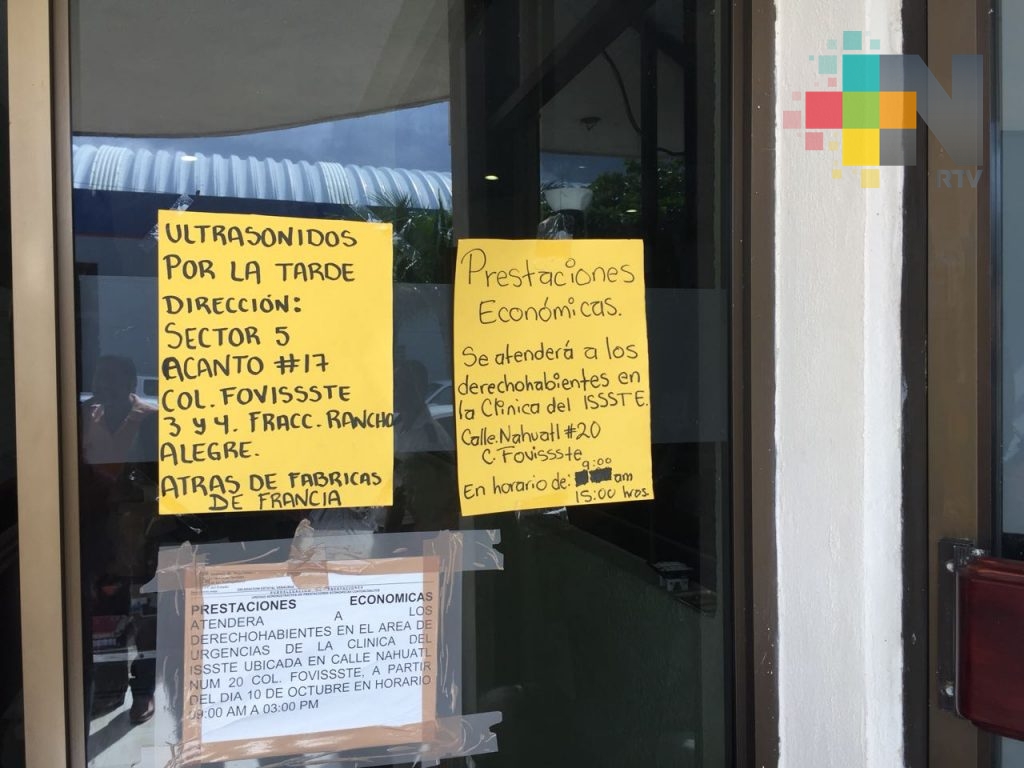 N
RTV
ULTRASONIDOS
POR LA TARDE
DIRECCIÓN:
SECTOR 5
ACANTO #17
COL. FOVISSSTE
3 Y 4. FRACC. RANCHO
ALEGRE.
ATRAS DE FABRICAS
DE FRANCIA
Prestaciones
Económicas.
Se atenderá a los
derechohabientes en
la Clinica del ISSSTE.
Calle.Nahuatl #20
C. Fovissste
9:00
En horario de: am
15:00 hros.
PRESTACIONES ECONOMICAS
ATENDERA A LOS
DERECHOHABIENTES EN EL AREA DE
URGENCIAS DE LA CLINICA DEL
ISSSTE UBICADA EN CALLE NAHUATL
NUM 20 COL. FOVISSSTE, A PARTIR
DEL DIA 10 DE OCTUBRE EN HORARIO
09:00 AM A 03:00 PM